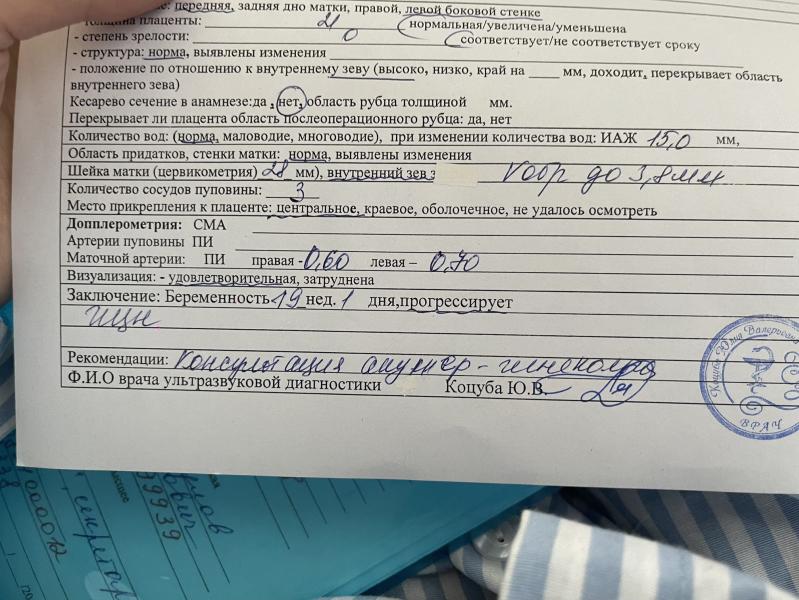 передняя, задняя дно матки, правой, левой боковой стенке
толщина плаценты: 21 (нормальная/увеличена/уменьшена
- степень зрелости: 0 соответствует/не соответствует сроку
- структура: норма, выявлены изменения
- положение по отношению к внутреннему зеву (высоко, низко, край на ____ мм, доходит, перекрывает область
внутреннего зева)
Кесарево сечение в анамнезе:да , нет, область рубца толщиной мм.
Перекрывает ли плацента область послеоперационного рубца: да, нет
Количество вод: (норма, маловодие, многоводие), при изменении количества вод: ИАЖ 15,0 мм,
Область придатков, стенки матки: норма, выявлены изменения
Шейка матки (цервикометрия) 28 мм), внутренний зев з Vобр до 3,8 мм
Количество сосудов пуповины: 3
Место прикрепления к плаценте: центральное, краевое, оболочечное, не удалось осмотреть
Допплерометрия: СМА
Артерии пуповины ПИ
Маточной артерии: ПИ правая - 0,60 левая – 0,70
Визуализация: - удовлетворительная, затруднена
Заключение: Беременность 19 нед. 1 дня,прогрессирует
ИЦН
Рекомендации: Консультация акушер-гинеколога
Ф.И.О врача ультразвуковой диагностики Коцуба Ю.В.
Коцуба Юлия Валерьевна
ВРАЧ
99939
секретар